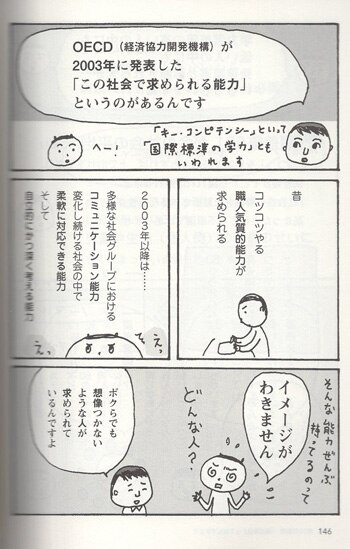 OECD（経済協力開発機構）が
2003年に発表した
「この社会で求められる能力」
というのがあるんです
「キー・コンピテンシー」といって
「国際標準の学力」とも
いわれます
へー！
昔
コツコツやる
職人気質的能力が
求められる
２００３年以降は……
多様な社会グループにおける
コミュニケーション能力
変化し続ける社会の中で
柔軟に対応できる能力
そして
自立的にかつ深く考える能力
え、
えっ
そんな能力ぜんぶ
持ってるのって
イメージが
わきません
どんな人？
ボクらでも
想像つかない
ような人が
求められて
いるんですよ
146